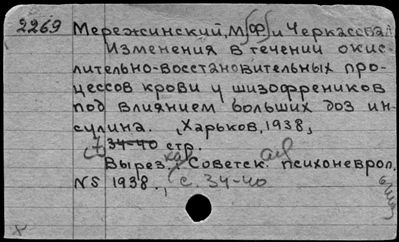 2269 Мережинский, М[Ф] и Черкасова
Изменения в течении окис-
лительно-восстановительных про-
цессов крови у шизофреников
под влиянием больших доз ин-
сулина. [Харьков, 1938,
7 34-40 стр.
Вырез. Советск. психоневрол.
NS 1938., с. 34-40